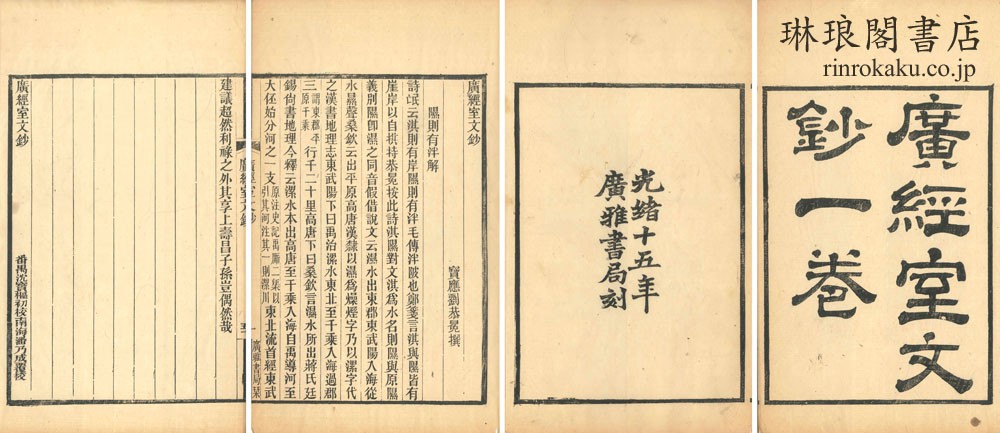 琳琅閣書店
rinrokaku.co.jp
廣經室文
鈔一卷
光緒十五年
廣雅書局刻
廣經室文鈔
寶應劉恭冕撰
隰則有泮解
詩氓云淇則有岸隰則有泮毛傳泮陂也鄭箋言淇與隰皆有
崖岸以自拱持恭冕按此詩淇隰對文淇爲水名則隰與原隰
義別隰卽濕之同音假借說文云濕水出東郡東武陽入海從
水㬎聲桑欽云出平原高唐漢隸以濕爲燥溼字乃以漯字代
之漢書地理志東武陽下曰禹治漯水東北至千乘入海過郡
三
行千二十里高唐下曰桑欽言漯水所出蔣氏廷
錫尙書地理今釋云漯水本出高唐至千乘入海自禹導河至
大伾始分河之一支
東北流首經東武
廣經室文鈔
一
廣雅書局栞
建議超然利祿之外其享上壽昌子孫豈偶然哉
廣經室文鈔
番禺沈寶樞初校南海潘乃成覆校